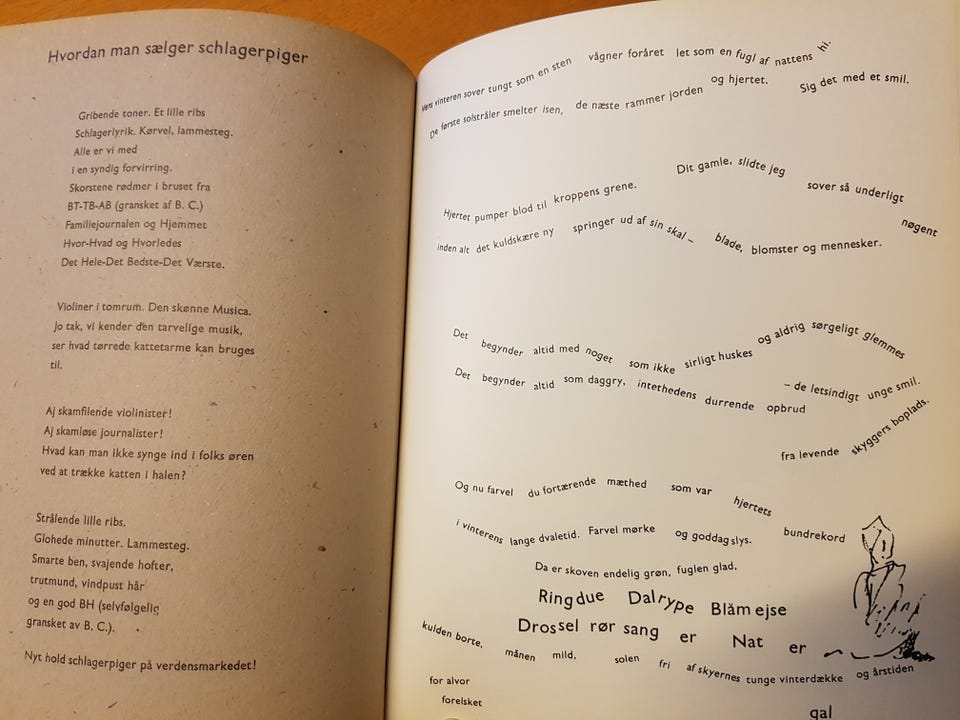 Hvordan man sælger schlagerpiger
Gribende toner. Et lille ribs
Schlagerlyrik. Kørvel, lammesteg.
Alle er vi med
i en syndig forvirring.
Skorstene rødmer i bruset fra
BT-TB-AB (gransket af B. C.)
Familiejournalen og Hjemmet
Hvor-Hvad og Hvorledes
Det Hele-Det Bedste-Det Værste.
Violiner i tomrum. Den skønne Musica.
Jo tak, vi kender den tarvelige musik,
ser hvad tørrede kattetarme kan bruges
til.
Aj skamfilende violinister!
Aj skamløse journalister!
Hvad kan man ikke synge ind i folks øren
ved at trække katten i halen?
Strålende lille ribs.
Glohede minutter. Lammesteg.
Smarte ben, svajende hofter,
trutmund, vindpust hår
og en god BH (selvfølgelig
gransket av B. C.).
Nyt hold schlagerpiger på verdensmarkedet!
Mens vinteren sover tungt som en sten vågner foråret let som en fugl af nattens hi.
De første solstråler smelter isen, de næste rammer jorden og hjertet. Sig det med et smil.
Dit gamle, slidte jeg sover så underligt nøgent
Hjertet pumper blod til kroppens grene.
inden alt det kuldskære ny springer ud af sin skal – blade, blomster og mennesker.
Det begynder altid med noget som ikke sirligt huskes og aldrig sørgeligt glemmes
Det begynder altid som daggry, intethedens durrende opbrud – de letsindigt unge smil.
fra levende skyggers boplads.
Og nu farvel du fortærende mæthed som var hjertets bundrekord
i vinterens lange dvaletid. Farvel mørke og goddag slys.
Da er skoven endelig grøn, fuglen glad,
Ringdue Dalrype Blåmejse
Drossel rør sang er Nat er
kulden borte, månen mild, solen fri af skyernes tunge vinterdække og årstiden
for alvor
forelsket
gal